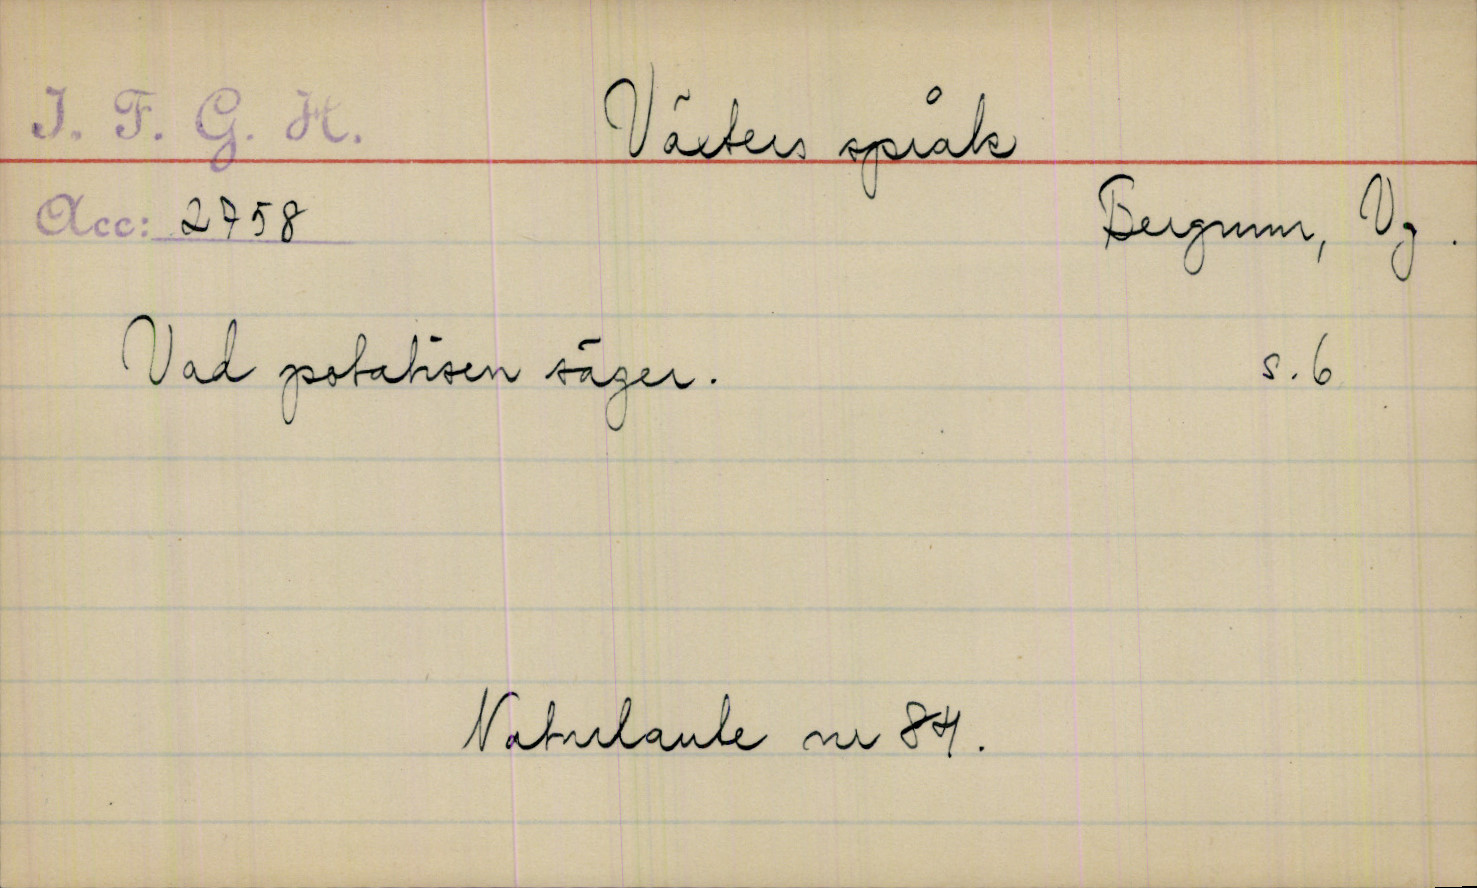 I. F. G. H.
Växters språk
Acc: 2758
Bergum, Vg.
Vad potatisen säger. s. 6
Naturlaute nr 84.